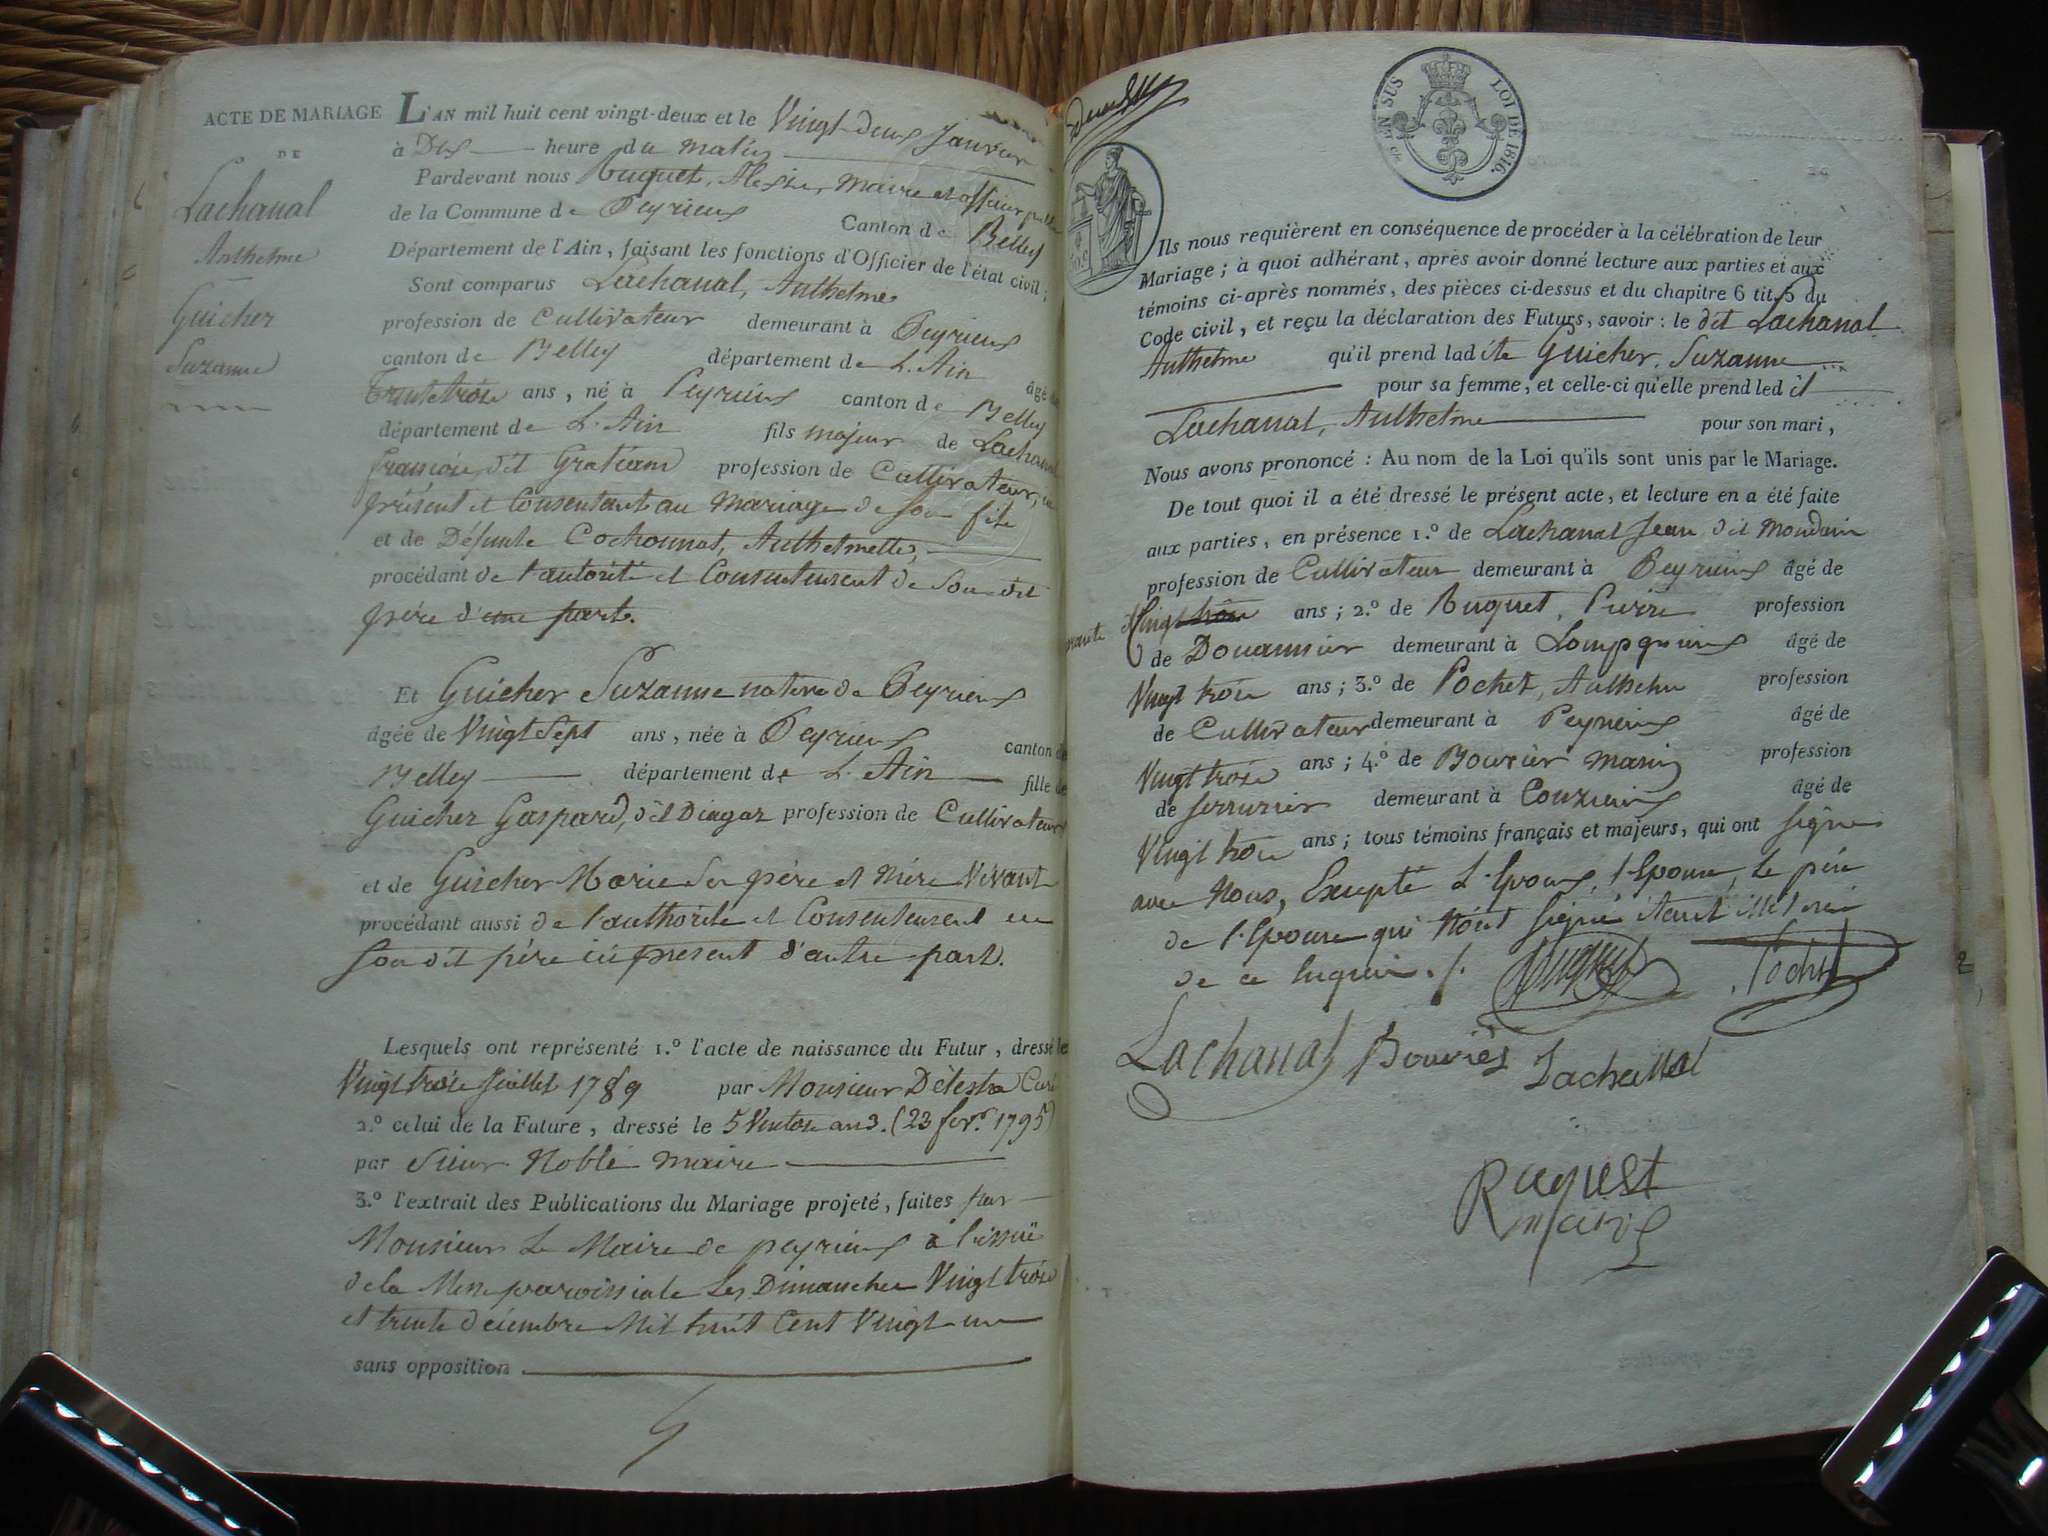 ACTE DE MARIAGE
DE
Lachanal
Anthelme
Guicher
Suzanne
L'AN mil huit cent vingt-deux et le Vingt deux Janvier
à Dix heure du matin
Pardevant nous Buguet, Maire et officier
de la Commune de Peyrieux Canton de Belley
Département de l'Ain, faisant les fonctions d'Officier de l'état civil;
Sont comparus Lachanal, Anthelme
profession de Cultivateur demeurant à Peyrieux
canton de Belley département de L'Ain âgé de
trente trois ans, né à Peyrieux canton de Belley
département de L'Ain fils majeur de Lachanal
françois dit Gratiand profession de Cultivateur,
présent et Consentant au mariage de son fils
et de Défunte Cochonnat, Anthelmette,
procédant de l'autorité et Consentement de Son dit
père d'une part.
Et Guicher Suzanne native de Peyrieux
âgée de Vingt Sept ans, née à Peyrieux canton de
Belley département de L'Ain fille de
Guicher Gaspard, dit Diagaz profession de Cultivateur
et de Guicher Marie Ses père et Mère Vivant
procédant aussi de l'authorité et Consentement de
Son dit père ici présent d'autre part.
Lesquels ont représenté 1.º l'acte de naissance du Futur, dressé le
Vingt trois Juillet 1789 par Monsieur Délestra Curé
2.º celui de la Future, dressé le 5 Ventose an 3. (23 fevr. 1795)
par Sieur Noble maire
3.º l'extrait des Publications du Mariage projeté, faites par
Monsieur Le Maire de peyrieux à l'issuë
de la Messe paroissiale Les Dimanches Vingt trois
et trente décembre Mil huit Cent Vingt un
sans opposition
EN SUS LOI DE 1816.
Ils nous requièrent en conséquence de procéder à la célébration de leur
Mariage; à quoi adhérant, après avoir donné lecture aux parties et aux
témoins ci-après nommés, des pièces ci-dessus et du chapitre 6 tit. 5 du
Code civil, et reçu la déclaration des Futurs, savoir: le dit Lachanal
Anthelme qu'il prend ladite Guicher, Suzanne
pour sa femme, et celle-ci qu'elle prend ledit
Lachanal, Anthelme pour son mari,
Nous avons prononcé: Au nom de la Loi qu'ils sont unis par le Mariage.
De tout quoi il a été dressé le présent acte, et lecture en a été faite
aux parties, en présence 1.º de Lachanal Jean dit Mondain
profession de Cultivateur demeurant à Peyrieux âgé de
Vingt trois ans; 2.º de Buguet, Pierre profession
de Douannier demeurant à Lompgnieux âgé de
Vingt trois ans; 3.º de Pochet, Anthelme profession
de Cultivateur demeurant à Peyrieux âgé de
Vingt trois ans; 4.º de Bouvier Marin profession
de Serrurier demeurant à Conzieux âgé de
Vingt trois ans; tous témoins français et majeurs, qui ont signé
avec Nous, Excepté L'Epoux, l'Epouse, le père
de l'Epouse qui N'ont Signé étant illetrés
de ce Enquis ./. Buguet Pochet
Lachanal Bouvier Lachanal
Buguet
maire